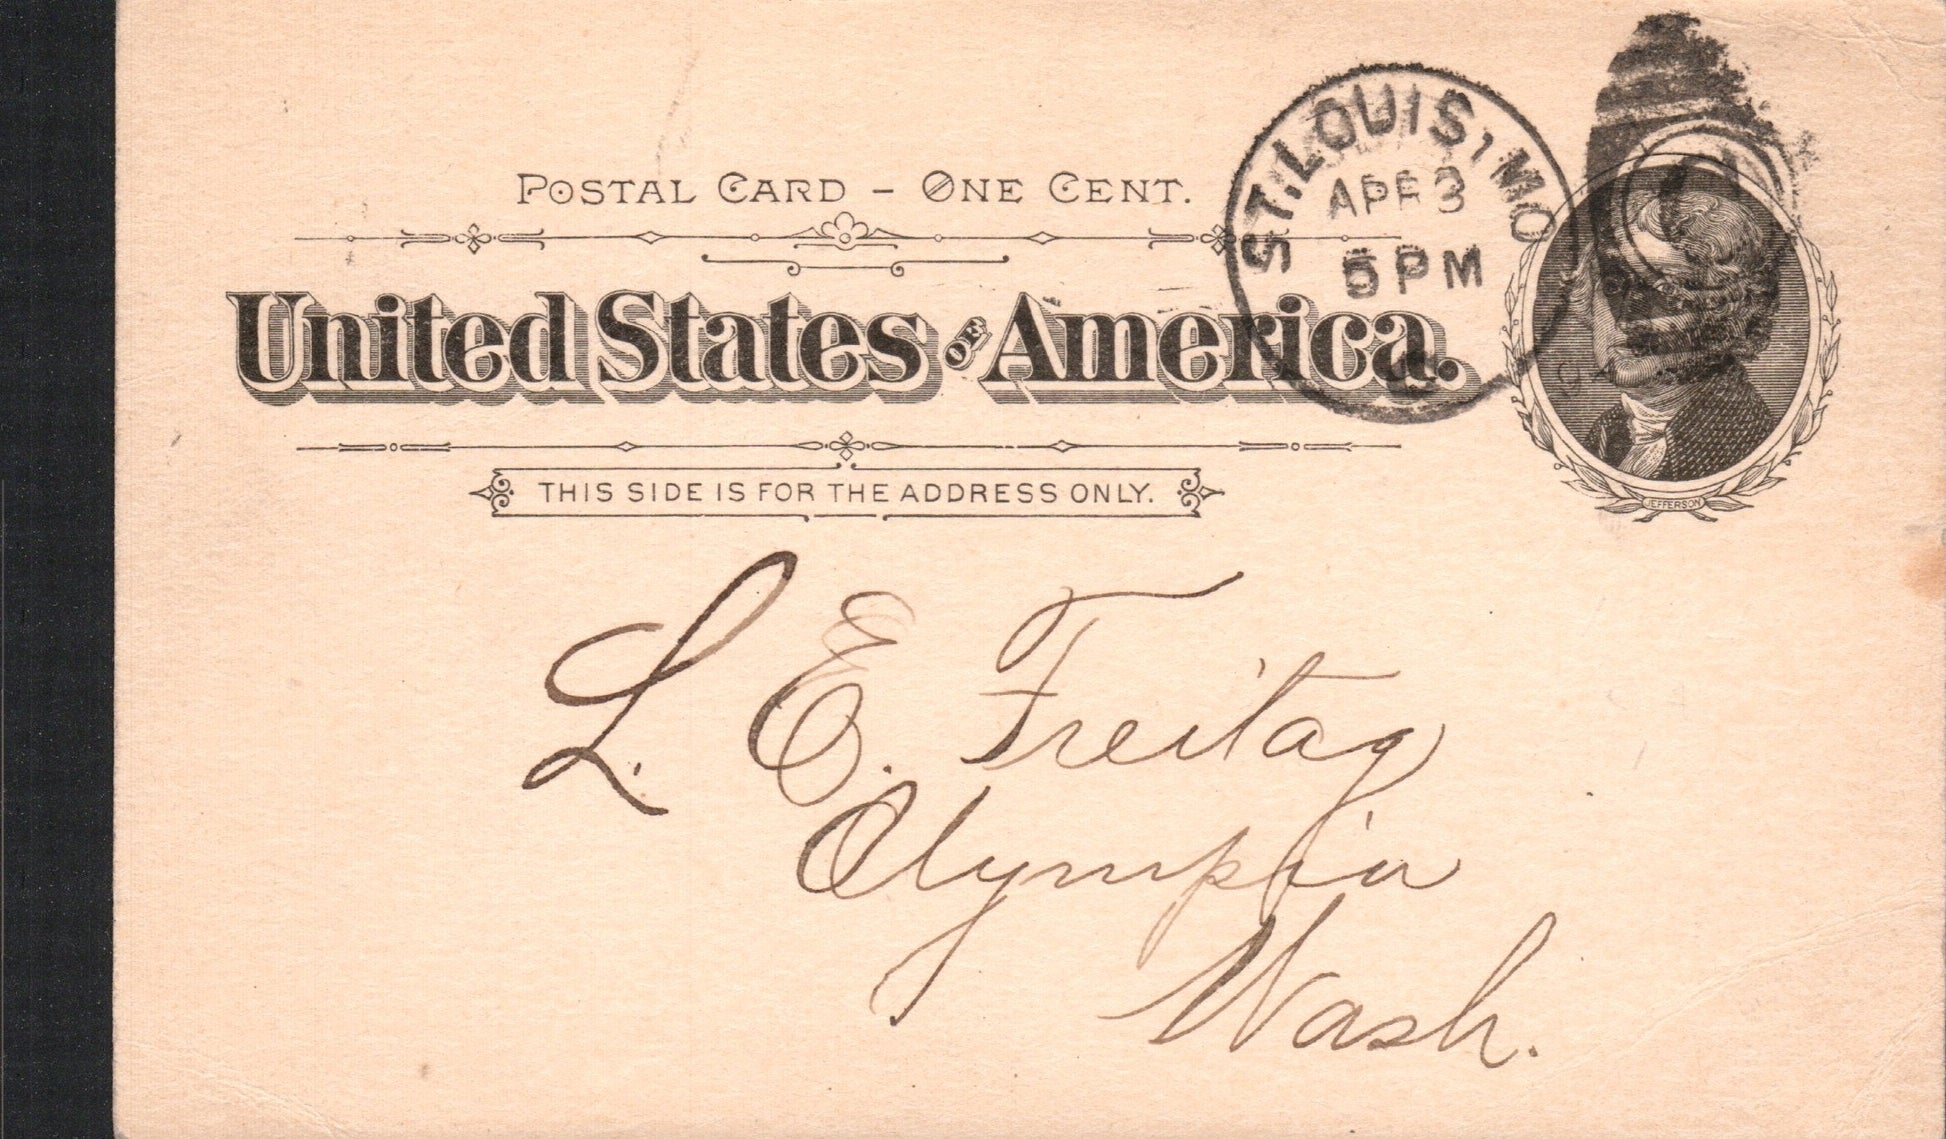 POSTAL CARD – ONE CENT.
United States OF America.
THIS SIDE IS FOR THE ADDRESS ONLY.
ST. LOUIS, MO
APR 3
5 PM
JEFFERSON
L. E. Freitag
Olympia
Wash.